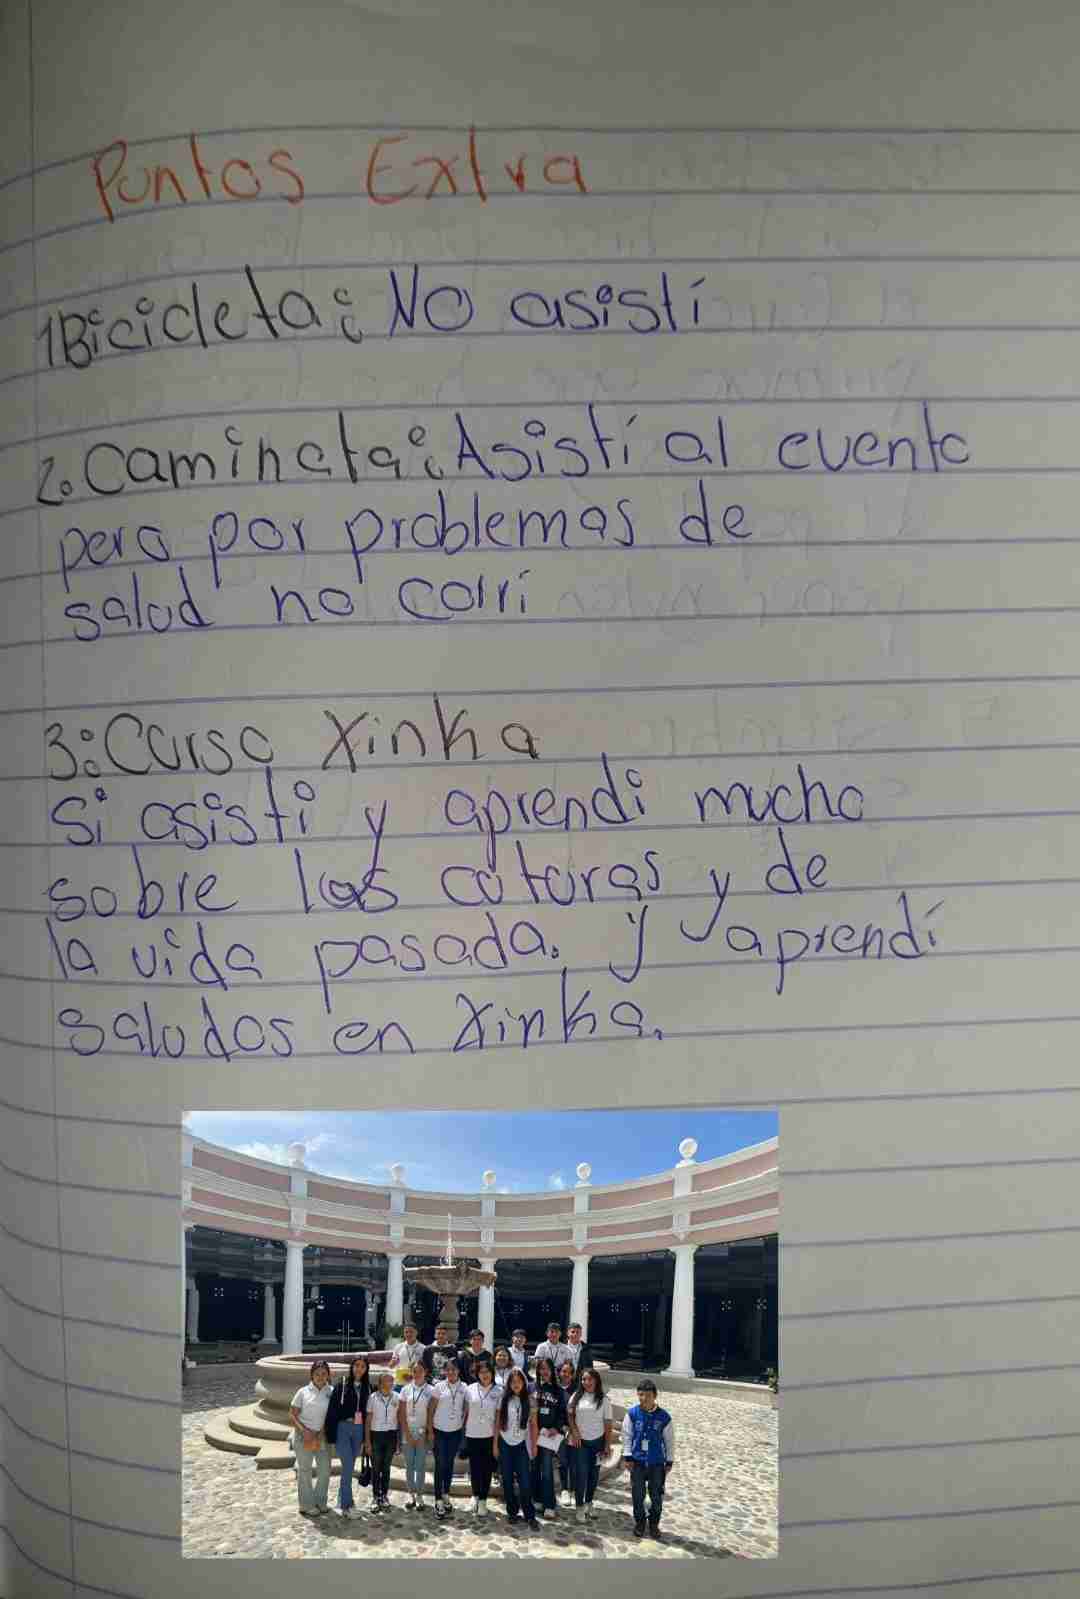 Puntos Extra
1Bicicleta: No asistí
2. Caminata: Asistí al evento
pero por problemas de
salud no corrí
3: Curso Xinka
Si asisti y aprendi mucho
sobre las coturas y de
la vida pasada. y aprendí
saludos en Xinka.